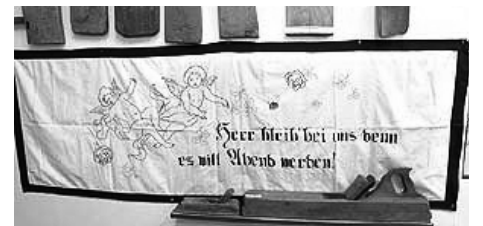 Herr bleib' bei uns denn
es will Abend werden!